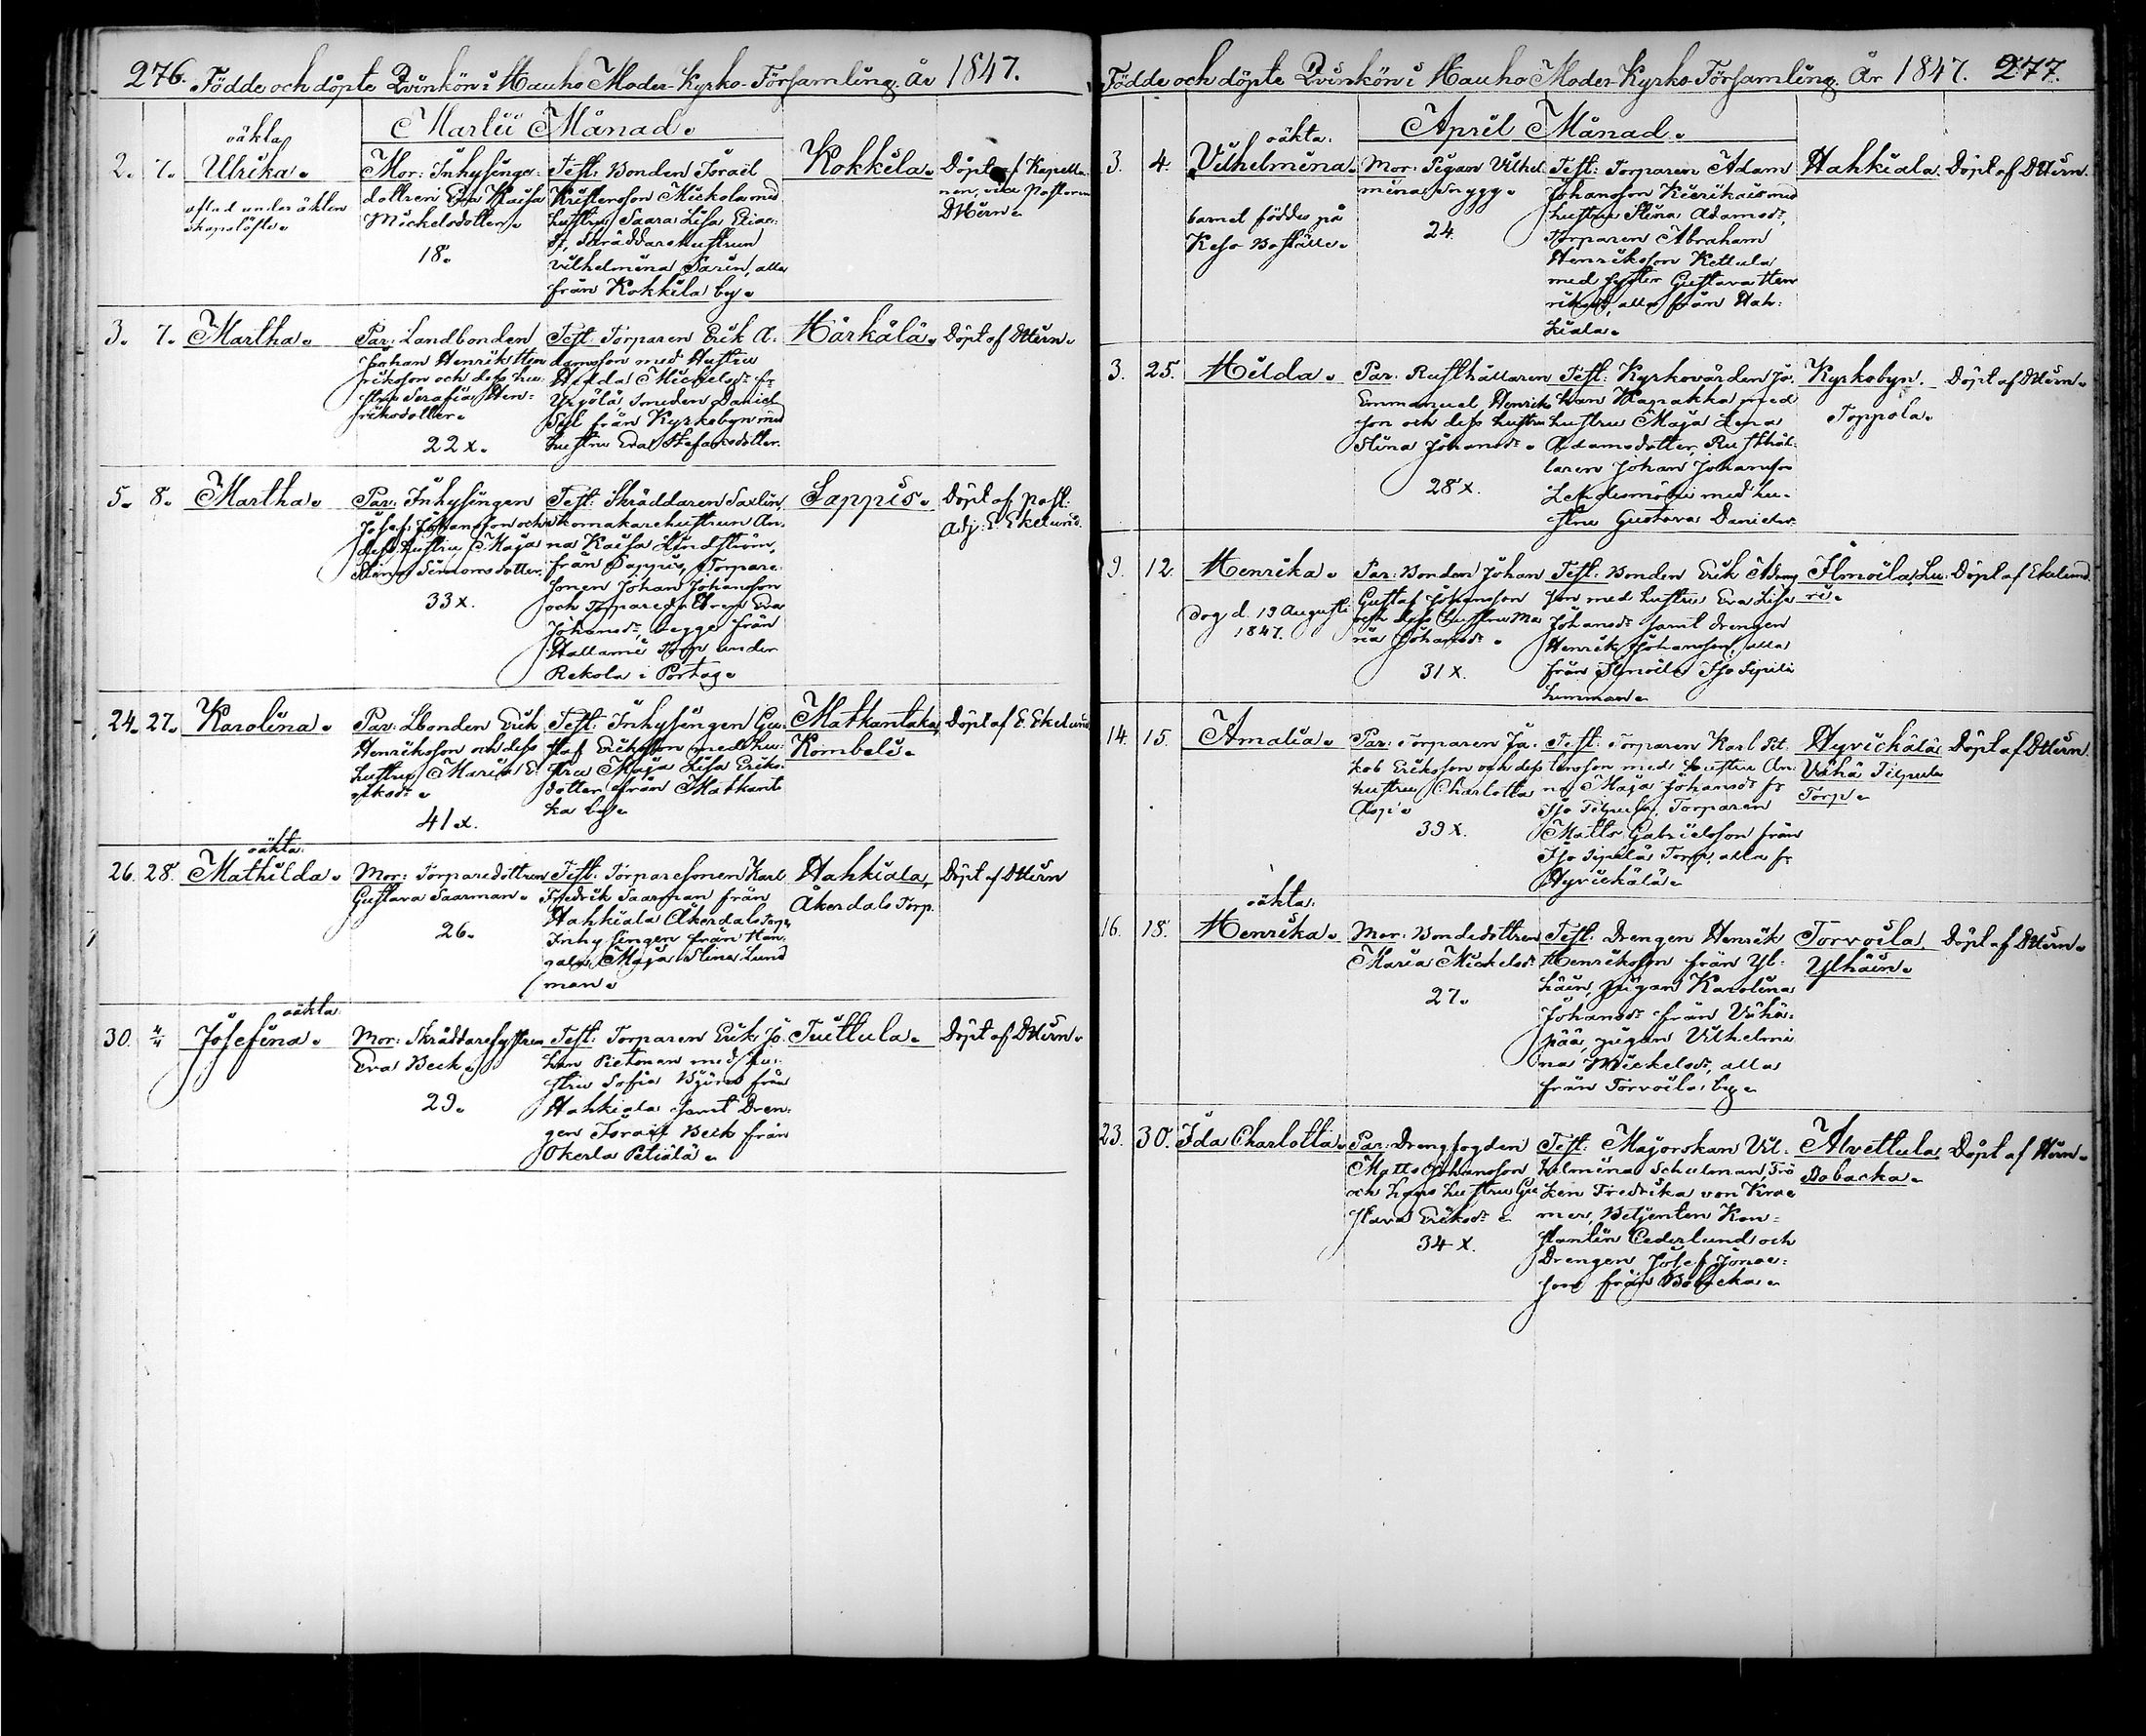 276. Födde och döpte Qvinkön i Hauho Moder-Kyrko-Församling. År 1847.
Martii Månad.
2. 7. oäkta
Ulrika.
aflad under äkten
skapslöfte.
Mor: Inhysinge-
dottren Eva Kaisa
Mickelsdotter.
18.
Test: Bonden Israël
Kristersson Mickola med
hustru Saara Lisa
Skräddarehustrun
Vilhelmina Sarin, alla
från Kokkila by.
Kokkila.
Döpt af Kapella-
nen, vice Pastoren
DHirn.
3. 7. Martha.
Par: Landbonden
Johan Henrik Hen
riksson och dess hu-
stru Serafia Hen-
riksdotter.
22 x.
Test: Torparen Erik A-
damsson med Hustru
Hedda Mickelsdr fr
Yrjölä Smeden Daniel
från Kyrkobyn med
hustru Eva Stefansdotter.
Härkälä.
Döpt af DHirn.
5. 8. Martha.
Par: Inhysingen
Josef Johansson och
dess Hustru Maja
Stina Simonsdotter.
33 x.
Test: Skräddaren Saxlin,
skomakarehustrun An-
na Kaisa Lindström,
från Sappis, Torpare-
sonen Johan Johansson
och Torparedottren Eva
Johansdr, begge från
Hallami Torp under
Rekola i Portas.
Sappis.
Döpt af past:
adj: E. Ekelund.
24. 27. Karolina.
Par: Lbonden Erik
Henriksson och dess
hustru Maria E-
riksdr.
41 x.
Test: Inhysingen Gu-
staf Eriksson med hu-
stru Maja Lisa Eriks-
dotter från Matkanta
ka by.
Matkantaka,
Kombali.
Döpt af E. Ekelund
26. 28. oäkta:
Mathilda.
Mor: Torparedottren
Gustava Saarman.
26.
Test: Torparesonen Karl
Fredrik Saarman från
Hahkiala Åkerdals Torp,
Inhysingen från Han-
gala Maja Stina Lund
man.
Hahkiala,
Åkerdals Torp.
Döpt af DHirn
30. 4/4 oäkta:
Josefina.
Mor: Skräddaresystren
Eva Beck.
29.
Test: Torparen Erik Jo-
han Pietonen med hu-
stru Sofia Björn från
Hahkiala samt Dren-
gen Israël Beck från
Okerla Petiälä.
Tuittula.
Döpt af DHirn.
Födde och döpte Qvinkön i Hauho Moder-Kyrko-Församling. År 1847. 277.
April Månad.
3. 4. oäkta:
Vilhelmina.
barnet föddes på
Keso Boställe.
Mor: Pigan Vilhel
mina Snygg.
24.
Test: Torparen Adam
Johansson Kierikais med
hustru Stina Adamsdr,
Torparen Abraham
Henriksson Kettula
med syster Gustava Hen
riksdr, alla från Hah-
kiala.
Hahkiala.
Döpt af DHirn.
3. 25. Hilda.
Par: Rusthållaren
Emmanuel Henriks
son och dess hustru
Stina Johansdr.
28 x.
Test: Kyrkovärden Jo-
han Hapakka med
hustru Maja Lena
Adamsdotter, Rusthål-
laren Johan Johansson
Lehdesmäki med hu-
stru Gustava Danielsdr.
Kyrkobyn.
Toppola.
Döpt af DHirn.
9. 12. Henrika.
Dog d. 19 Augusti
1847.
Par: Bonden Johan
Gustaf Johansson
och dess hustru Ma
ria Johansdr.
31 x.
Test: Bonden Erik Adams
son med hustru Eva Lisa
Johansdr samt drengen
Henrik Johansson, alla
från Ilmoila Iso Sipilä
hemman.
Ilmoila, Lu-
ri.
Döpt af Ekelund.
14. 15. Amalia.
Par: Torparen Ja-
kob Eriksson och dess
hustru Charlotta
39 x.
Test: Torparen Karl Pet-
tersson med hustru An-
na Maja Johansdr fr
Iso Tilpula, Torparen
Matts Gabrielsson från
Iso Sipilä Torp, alla fr
Hyvickälä.
Hyvickälä
Vähä Tilpula
Torp.
Döpt af DHirn.
16. 18. oäkta:
Henrika.
Mor: Bondedottren
Maria Mickelsdr
27.
Test: Drengen Henrik
Henriksson från Yl-
häin, pigan Karolina
Johansdr från Vähä-
pää, pigan Vilhelmi
na Mickelsdr, alla
från Torvoila by.
Torvoila,
Ylhäin.
Döpt af DHirn.
23. 30. Ida Charlotta.
Par: Drengfogden
Matts Johansson
och hans hustru Gu
stava Eriksdr.
34 x.
Test: Majorskan Vil-
helmina Schulman, Frö
ken Fredrika von Krae
mer, Betjenten Kon-
stantin Cederlund och
Drengen Josef Jonas-
son från Bobacka.
Alvettula
Bobacka.
Döpt af Hirn.